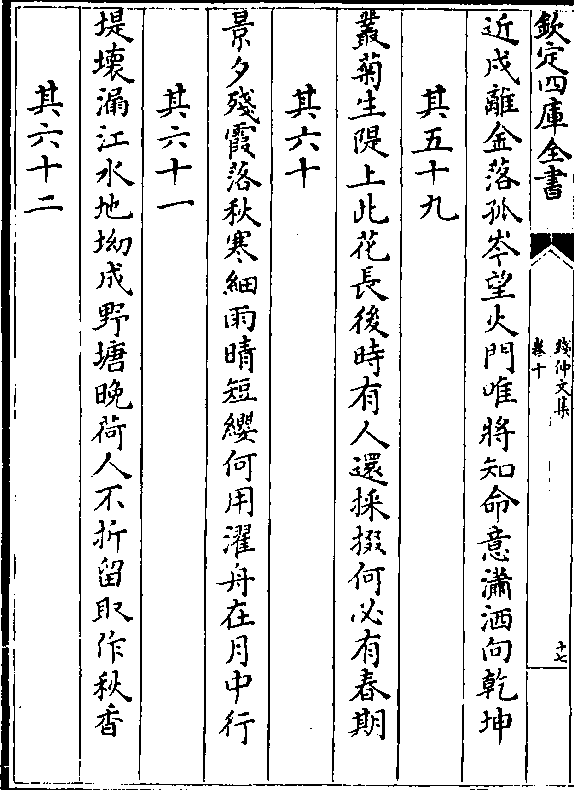 欽定四庫全書
錢仲文集
卷十
十七
近戍離金落孤岑望火門唯將知命意瀟洒向乾坤
其五十九
叢菊生隄上此花長後時有人還採掇何必有春期
其六十
景夕殘霞落秋寒細雨晴短纓何用濯舟在月中行
其六十一
堤壞漏江水地坳成野塘晚荷人不折留取作秋香
其六十二